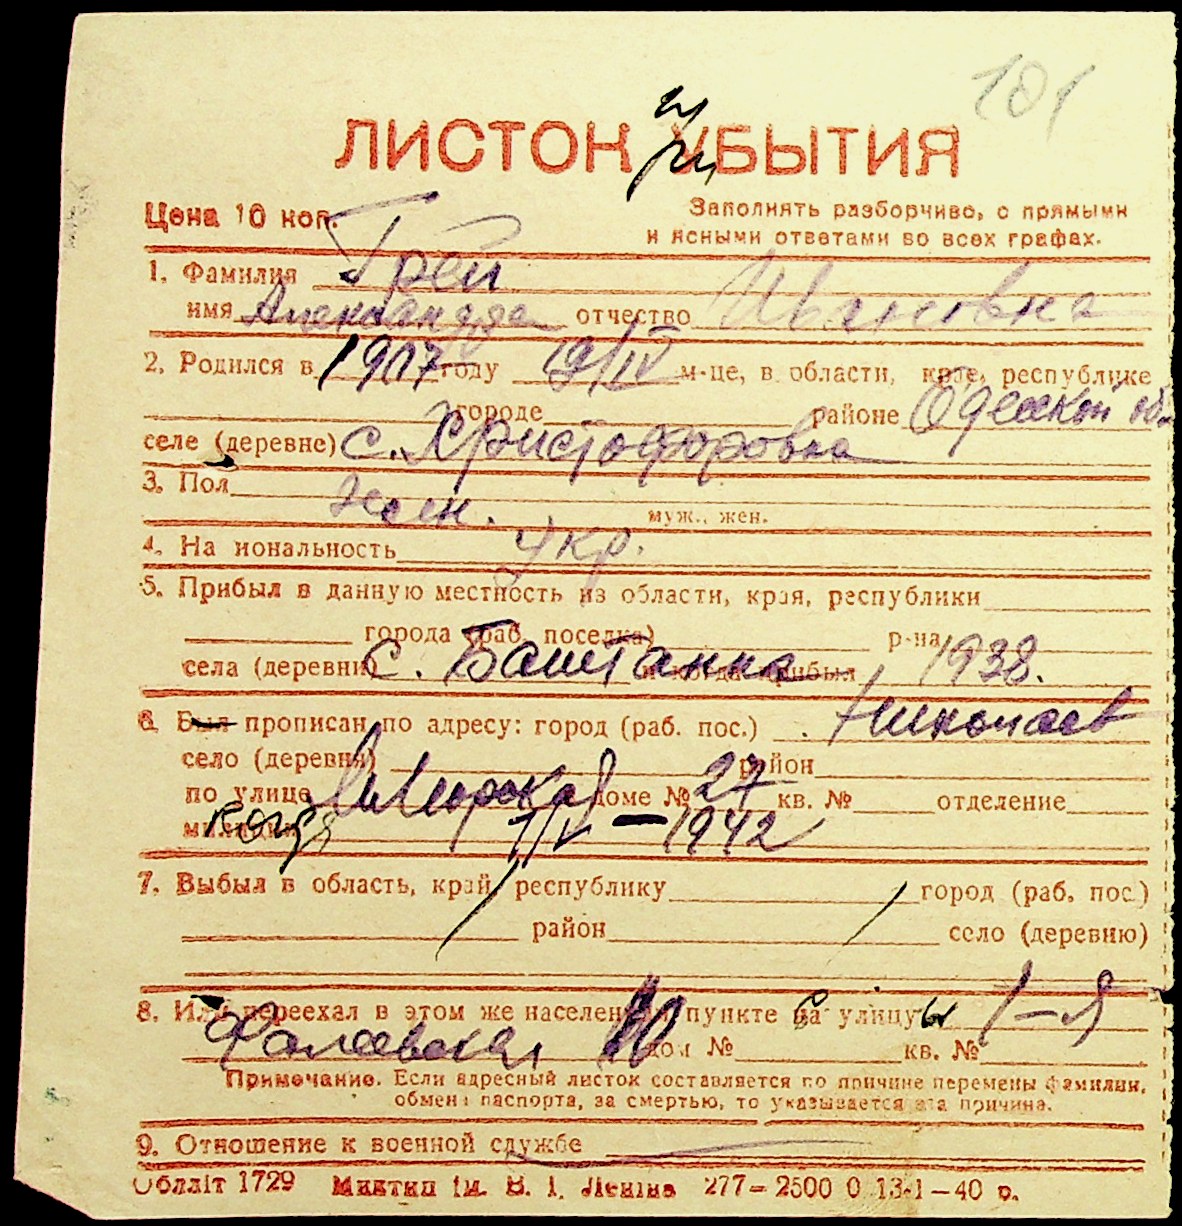 101
ЛИСТОК УБЫТИЯ
при
Цена 10 коп.
Заполнять разборчиво, с прямыми
и ясными ответами во всех графах.
1. Фамилия Грей
имя Александра отчество Ивановна
2. Родился в 1917 году 19/IV м-це, в области, крае, республике
городе районе Одесской обл
селе (деревне) с. Христофоровка
3. Пол жен.
муж., жен.
4. На иональность укр.
5. Прибыл в данную местность из области, края, республики
города (раб. поселка) р-на
села (деревни) с. Баштанка и когда прибыл 1938.
6. Был прописан по адресу: город (раб. пос.) Николаев
село (деревня) район
по улице доме № 27 кв. № отделение
милиции когда 1/IV — 1942
7. Выбыл в область, край, республику город (раб. пос.)
район село (деревню)
8. Или переехал в этом же населен. пункте с улицы 1-я
Фалеевская 10 дом № кв. №
Примечание. Если адресный листок составляется по причине перемены фамилии,
обмена паспорта, за смертью, то указывается эта причина.
9. Отношение к военной службе
Облліт 1729 Миктип ім. В. І. Леніна 277—2500 0 13-1—40 р.